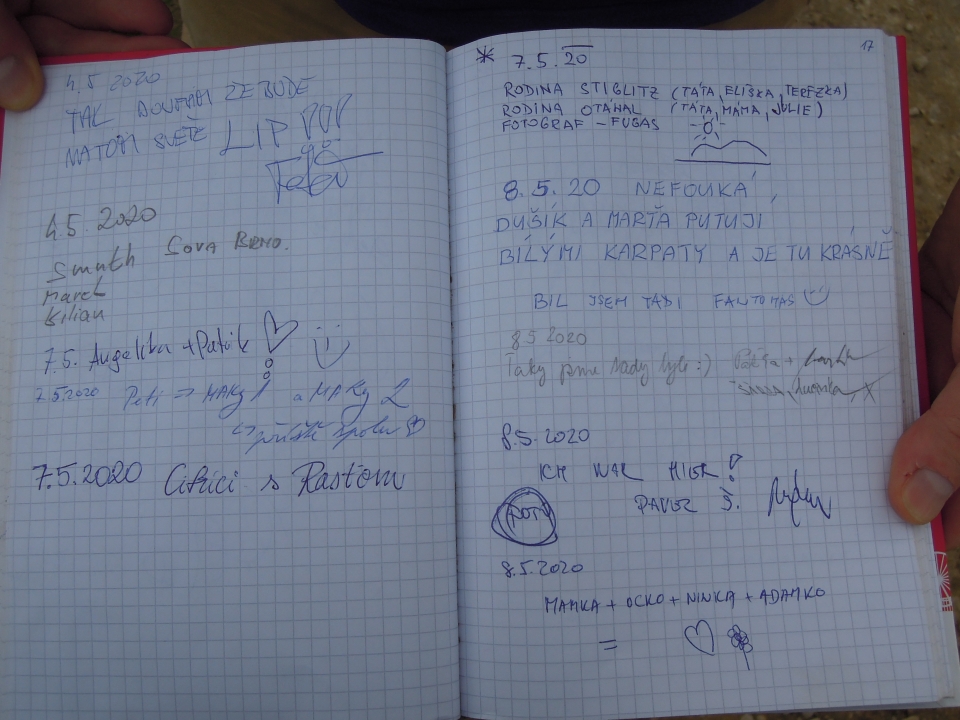 4.5 2020
TAK DOUFÁM ŽE BUDE
NA TOM SVĚTĚ LIP
4.5. 2020
SOVA BRNO.
Smuth
Marek
Kilian
7.5. Angelika + Patrik
7.5.2020 Peti => MAKy 1 a MAKy 2
příště spolu
7.5.2020 Citrici s Rasťom
17
* 7.5.20
RODINA STIGLITZ (TÁTA, ELIŠKA, TEREZKA)
RODINA OTÁHAL (TÁTA, MÁMA, JULIE)
FOTOGRAF - FUGAS
8.5.20 NEFOUKÁ,
DUŠÍK A MARŤA PUTUJÍ
BÍLÝMI KARPATY A JE TU KRÁSNĚ
BIL JSEM TADI FANTOMAS
8.5 2020
Taky jsme tady byli :)
8.5.2020
ICH WAR HIER!
PAVEL Š.
8.5.2020
MAMKA + OCKO + NINKA + ADAMKO
=